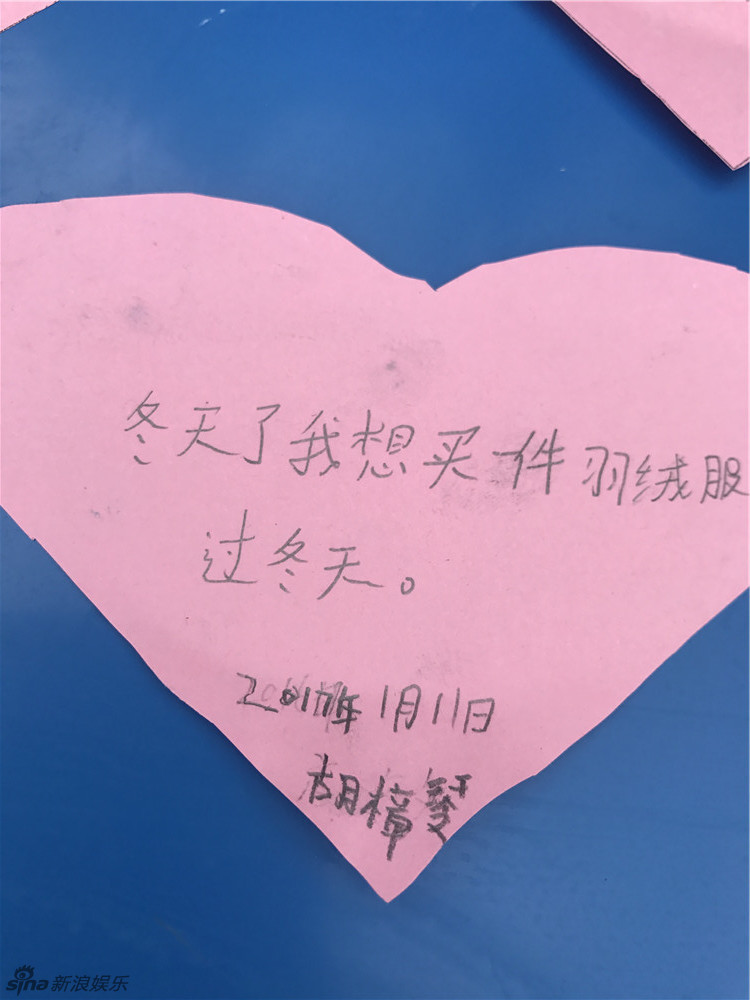 冬天了我想买一件羽绒服
过冬天。
2017年1月11日
胡樟琴
sina新浪娱乐